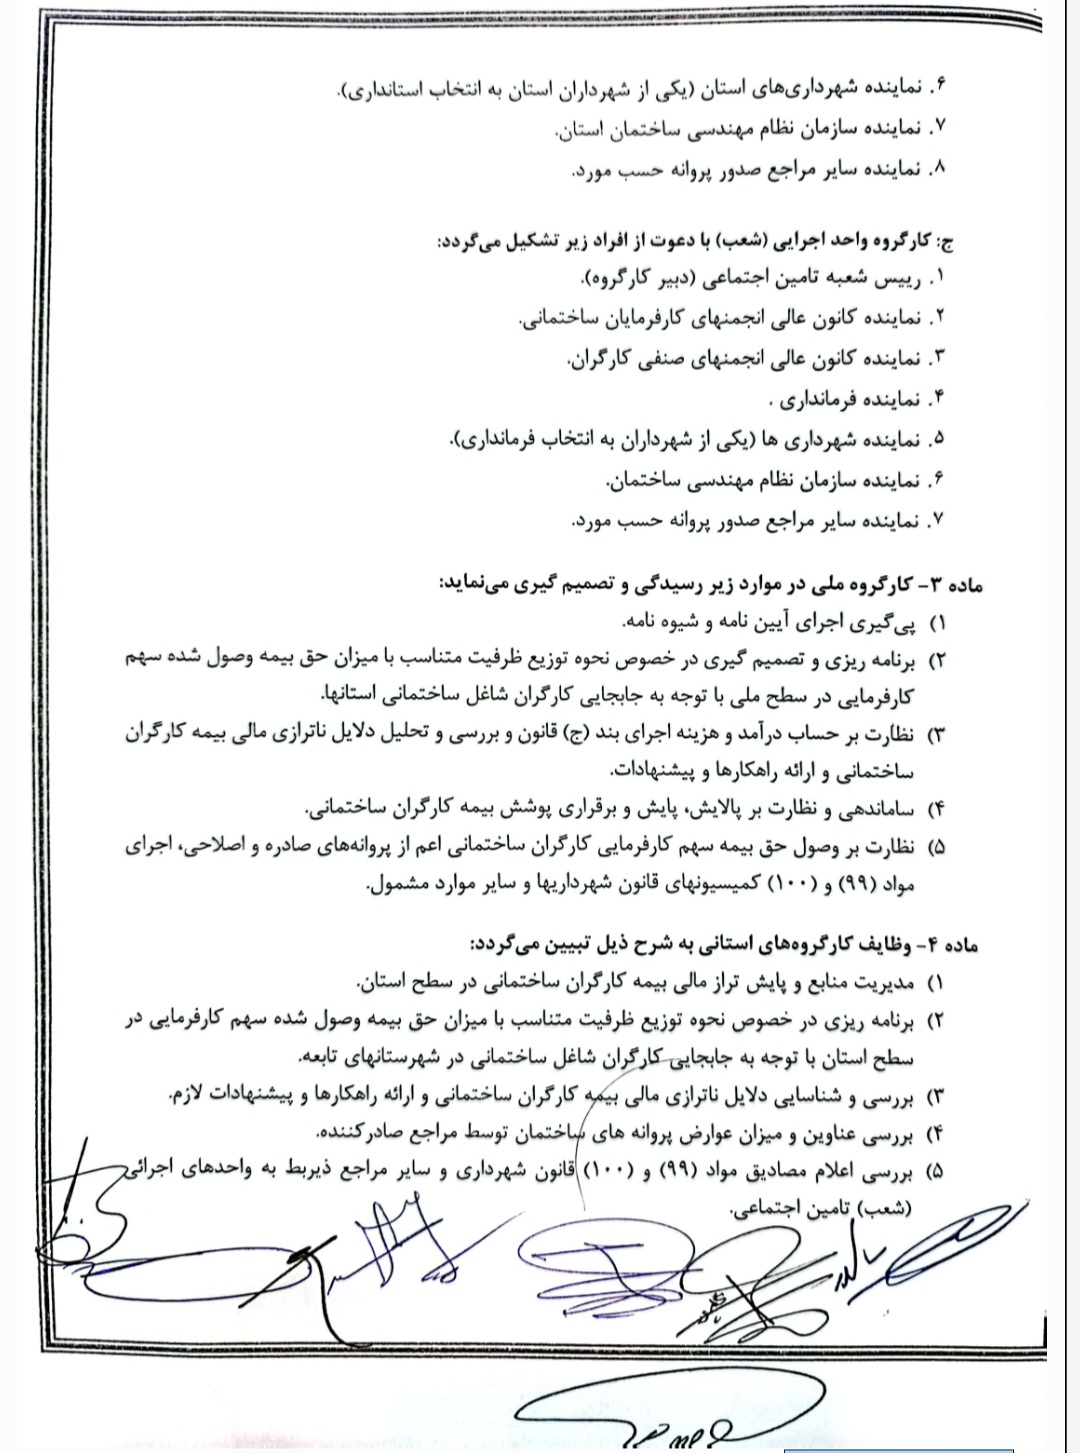 ۶. نماینده شهرداری‌های استان (یکی از شهرداران استان به انتخاب استانداری).
۷. نماینده سازمان نظام مهندسی ساختمان استان.
۸. نماینده سایر مراجع صدور پروانه حسب مورد.
ج: کارگروه واحد اجرایی (شعب) با دعوت از افراد زیر تشکیل می‌گردد:
۱. رییس شعبه تامین اجتماعی (دبیر کارگروه).
۲. نماینده کانون عالی انجمنهای کارفرمایان ساختمانی.
۳. نماینده کانون عالی انجمنهای صنفی کارگران.
۴. نماینده فرمانداری .
۵. نماینده شهرداری ها (یکی از شهرداران به انتخاب فرمانداری).
۶. نماینده سازمان نظام مهندسی ساختمان.
۷. نماینده سایر مراجع صدور پروانه حسب مورد.
ماده ۳- کارگروه ملی در موارد زیر رسیدگی و تصمیم گیری می‌نماید:
۱) پی‌گیری اجرای آیین نامه و شیوه نامه.
۲) برنامه ریزی و تصمیم گیری در خصوص نحوه توزیع ظرفیت متناسب با میزان حق بیمه وصول شده سهم
کارفرمایی در سطح ملی با توجه به جابجایی کارگران شاغل ساختمانی استانها.
۳) نظارت بر حساب درآمد و هزینه اجرای بند (ج) قانون و بررسی و تحلیل دلایل ناترازی مالی بیمه کارگران
ساختمانی و ارائه راهکارها و پیشنهادات.
۴) ساماندهی و نظارت بر پالایش، پایش و برقراری پوشش بیمه کارگران ساختمانی.
۵) نظارت بر وصول حق بیمه سهم کارفرمایی کارگران ساختمانی اعم از پروانه‌های صادره و اصلاحی، اجرای
مواد (۹۹) و (۱۰۰) کمیسیونهای قانون شهرداریها و سایر موارد مشمول.
ماده ۴- وظایف کارگروه‌های استانی به شرح ذیل تبیین می‌گردد:
۱) مدیریت منابع و پایش تراز مالی بیمه کارگران ساختمانی در سطح استان.
۲) برنامه ریزی در خصوص نحوه توزیع ظرفیت متناسب با میزان حق بیمه وصول شده سهم کارفرمایی در
سطح استان با توجه به جابجایی کارگران شاغل ساختمانی در شهرستانهای تابعه.
۳) بررسی و شناسایی دلایل ناترازی مالی بیمه کارگران ساختمانی و ارائه راهکارها و پیشنهادات لازم.
۴) بررسی عناوین و میزان عوارض پروانه های ساختمان توسط مراجع صادرکننده.
۵) بررسی اعلام مصادیق مواد (۹۹) و (۱۰۰) قانون شهرداری و سایر مراجع ذیربط به واحدهای اجرائی
(شعب) تامین اجتماعی.